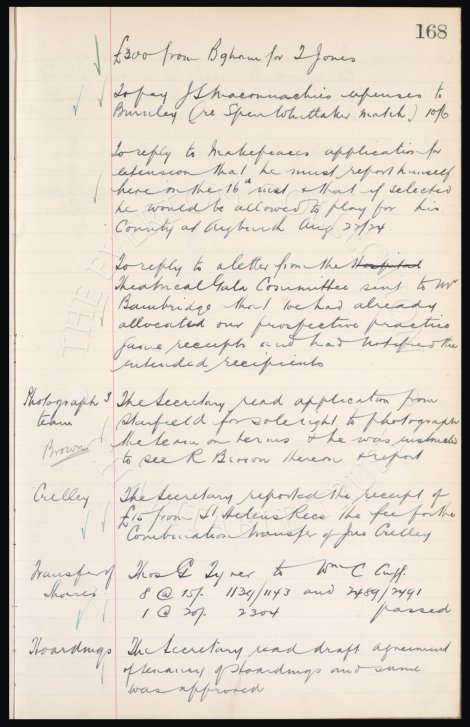 168
£300 from Bgham for T Jones
To pay J S Maconnachies expenses to
Burnley (re Spen Whittaker match) 10/6
To reply to Makepeaces application for
extension that he must report himself
here on the 16th inst & that if selected
he would be allowed to play for his
County at Aigburth Aug 22/24
To reply to a letter from the Hospital
Theatrical Gala Committee sent to Mr
Bainbridge that we had already
allocated our prospective practice
game receipts and had notified the
intended recipients
Photograph team
Brown
The Secretary read application from
for sole right to photograph
the team on terms & he was instructed
to see R Brown thereon & report
Crelley
The Secretary reported the receipt of
£15 from St Helens Recs the fee for the
Combination transfer of Jno Crelley
Transfer of Shares
Thos G Tyrer to Wm C Cuff
8 @ 15/. 1134/1143 and 2489/2491
1 @ 20/. 2304 passed
Hoardings
The Secretary read draft agreement
of tenancy of Hoardings and same
was approved